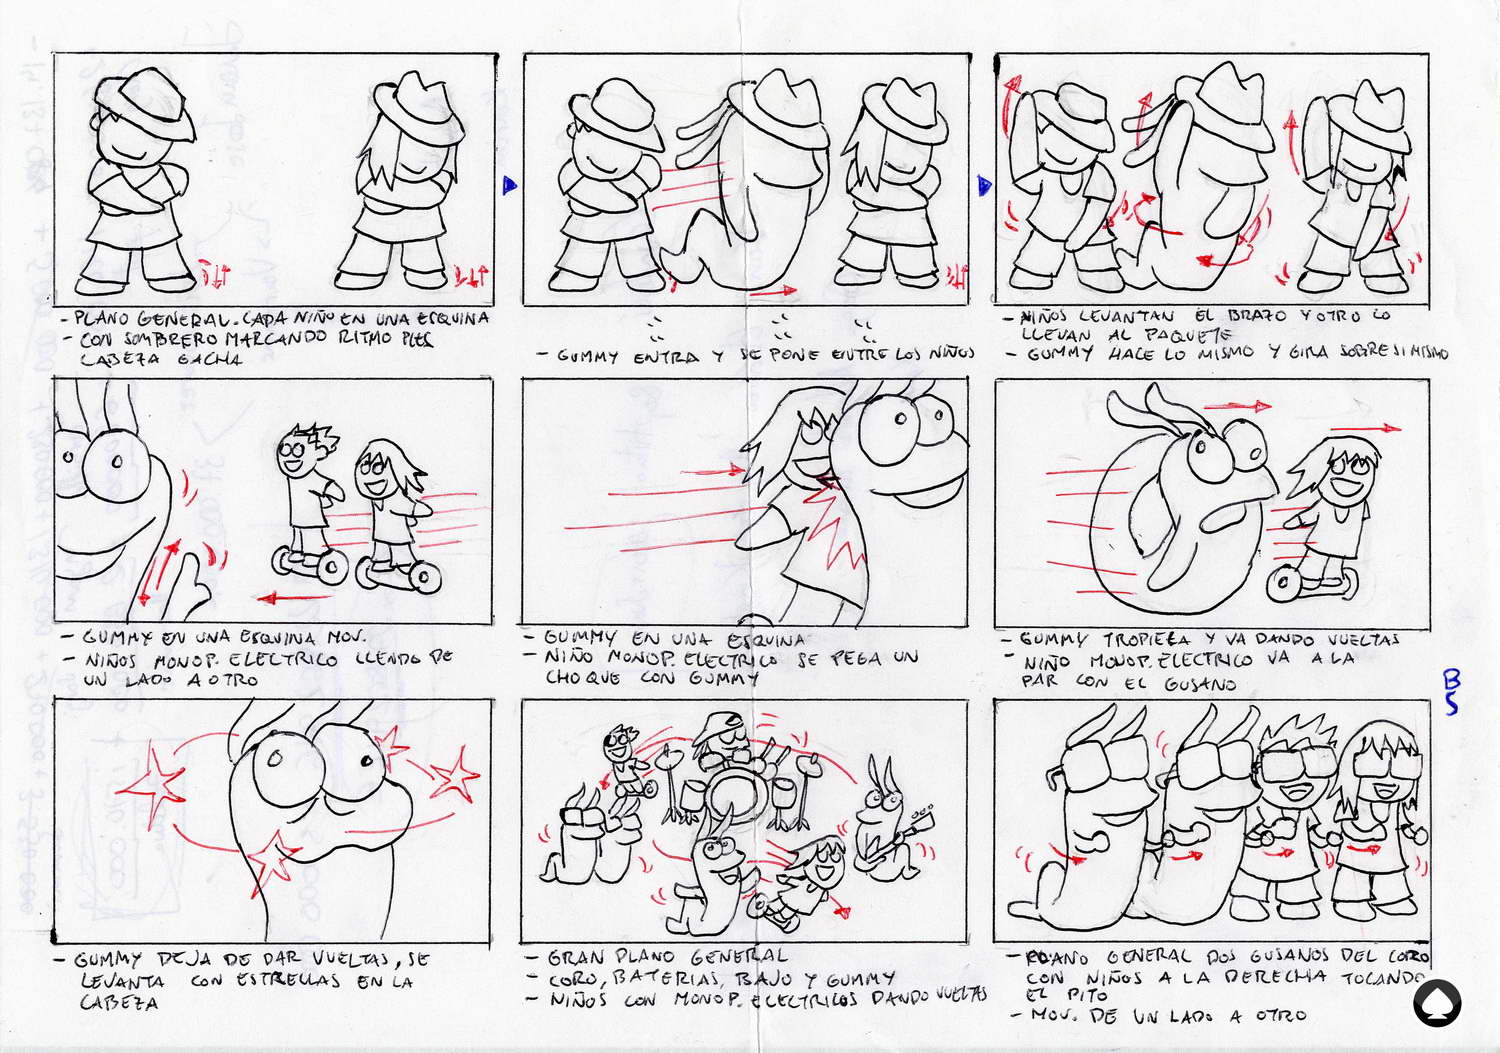 - PLANO GENERAL. CADA NIÑO EN UNA ESQUINA
- CON SOMBRERO MARCANDO RITMO PIES
CABEZA GACHA
- GUMMY ENTRA Y SE PONE ENTRE LOS NIÑOS
- NIÑOS LEVANTAN EL BRAZO Y OTRO LO
LLEVAN AL PAQUETE
- GUMMY HACE LO MISMO Y GIRA SOBRE SI MISMO
- GUMMY EN UNA ESQUINA MOV.
- NIÑOS MONOP. ELECTRICO LLENDO DE
UN LADO A OTRO
- GUMMY EN UNA ESQUINA
- NIÑO MONOP. ELECTRICO SE PEGA UN
CHOQUE CON GUMMY
- GUMMY TROPIEZA Y VA DANDO VUELTAS
- NIÑO MONOP. ELECTRICO VA A LA
PAR CON EL GUSANO
BS
- GUMMY DEJA DE DAR VUELTAS, SE
LEVANTA CON ESTRELLAS EN LA
CABEZA
- GRAN PLANO GENERAL
- CORO, BATERIAS, BAJO Y GUMMY
- NIÑOS CON MONOP. ELECTRICOS DANDO VUELTAS
- PLANO GENERAL DOS GUSANOS DEL CORO
CON NIÑOS A LA DERECHA TOCANDO
EL PITO
- MOV. DE UN LADO A OTRO